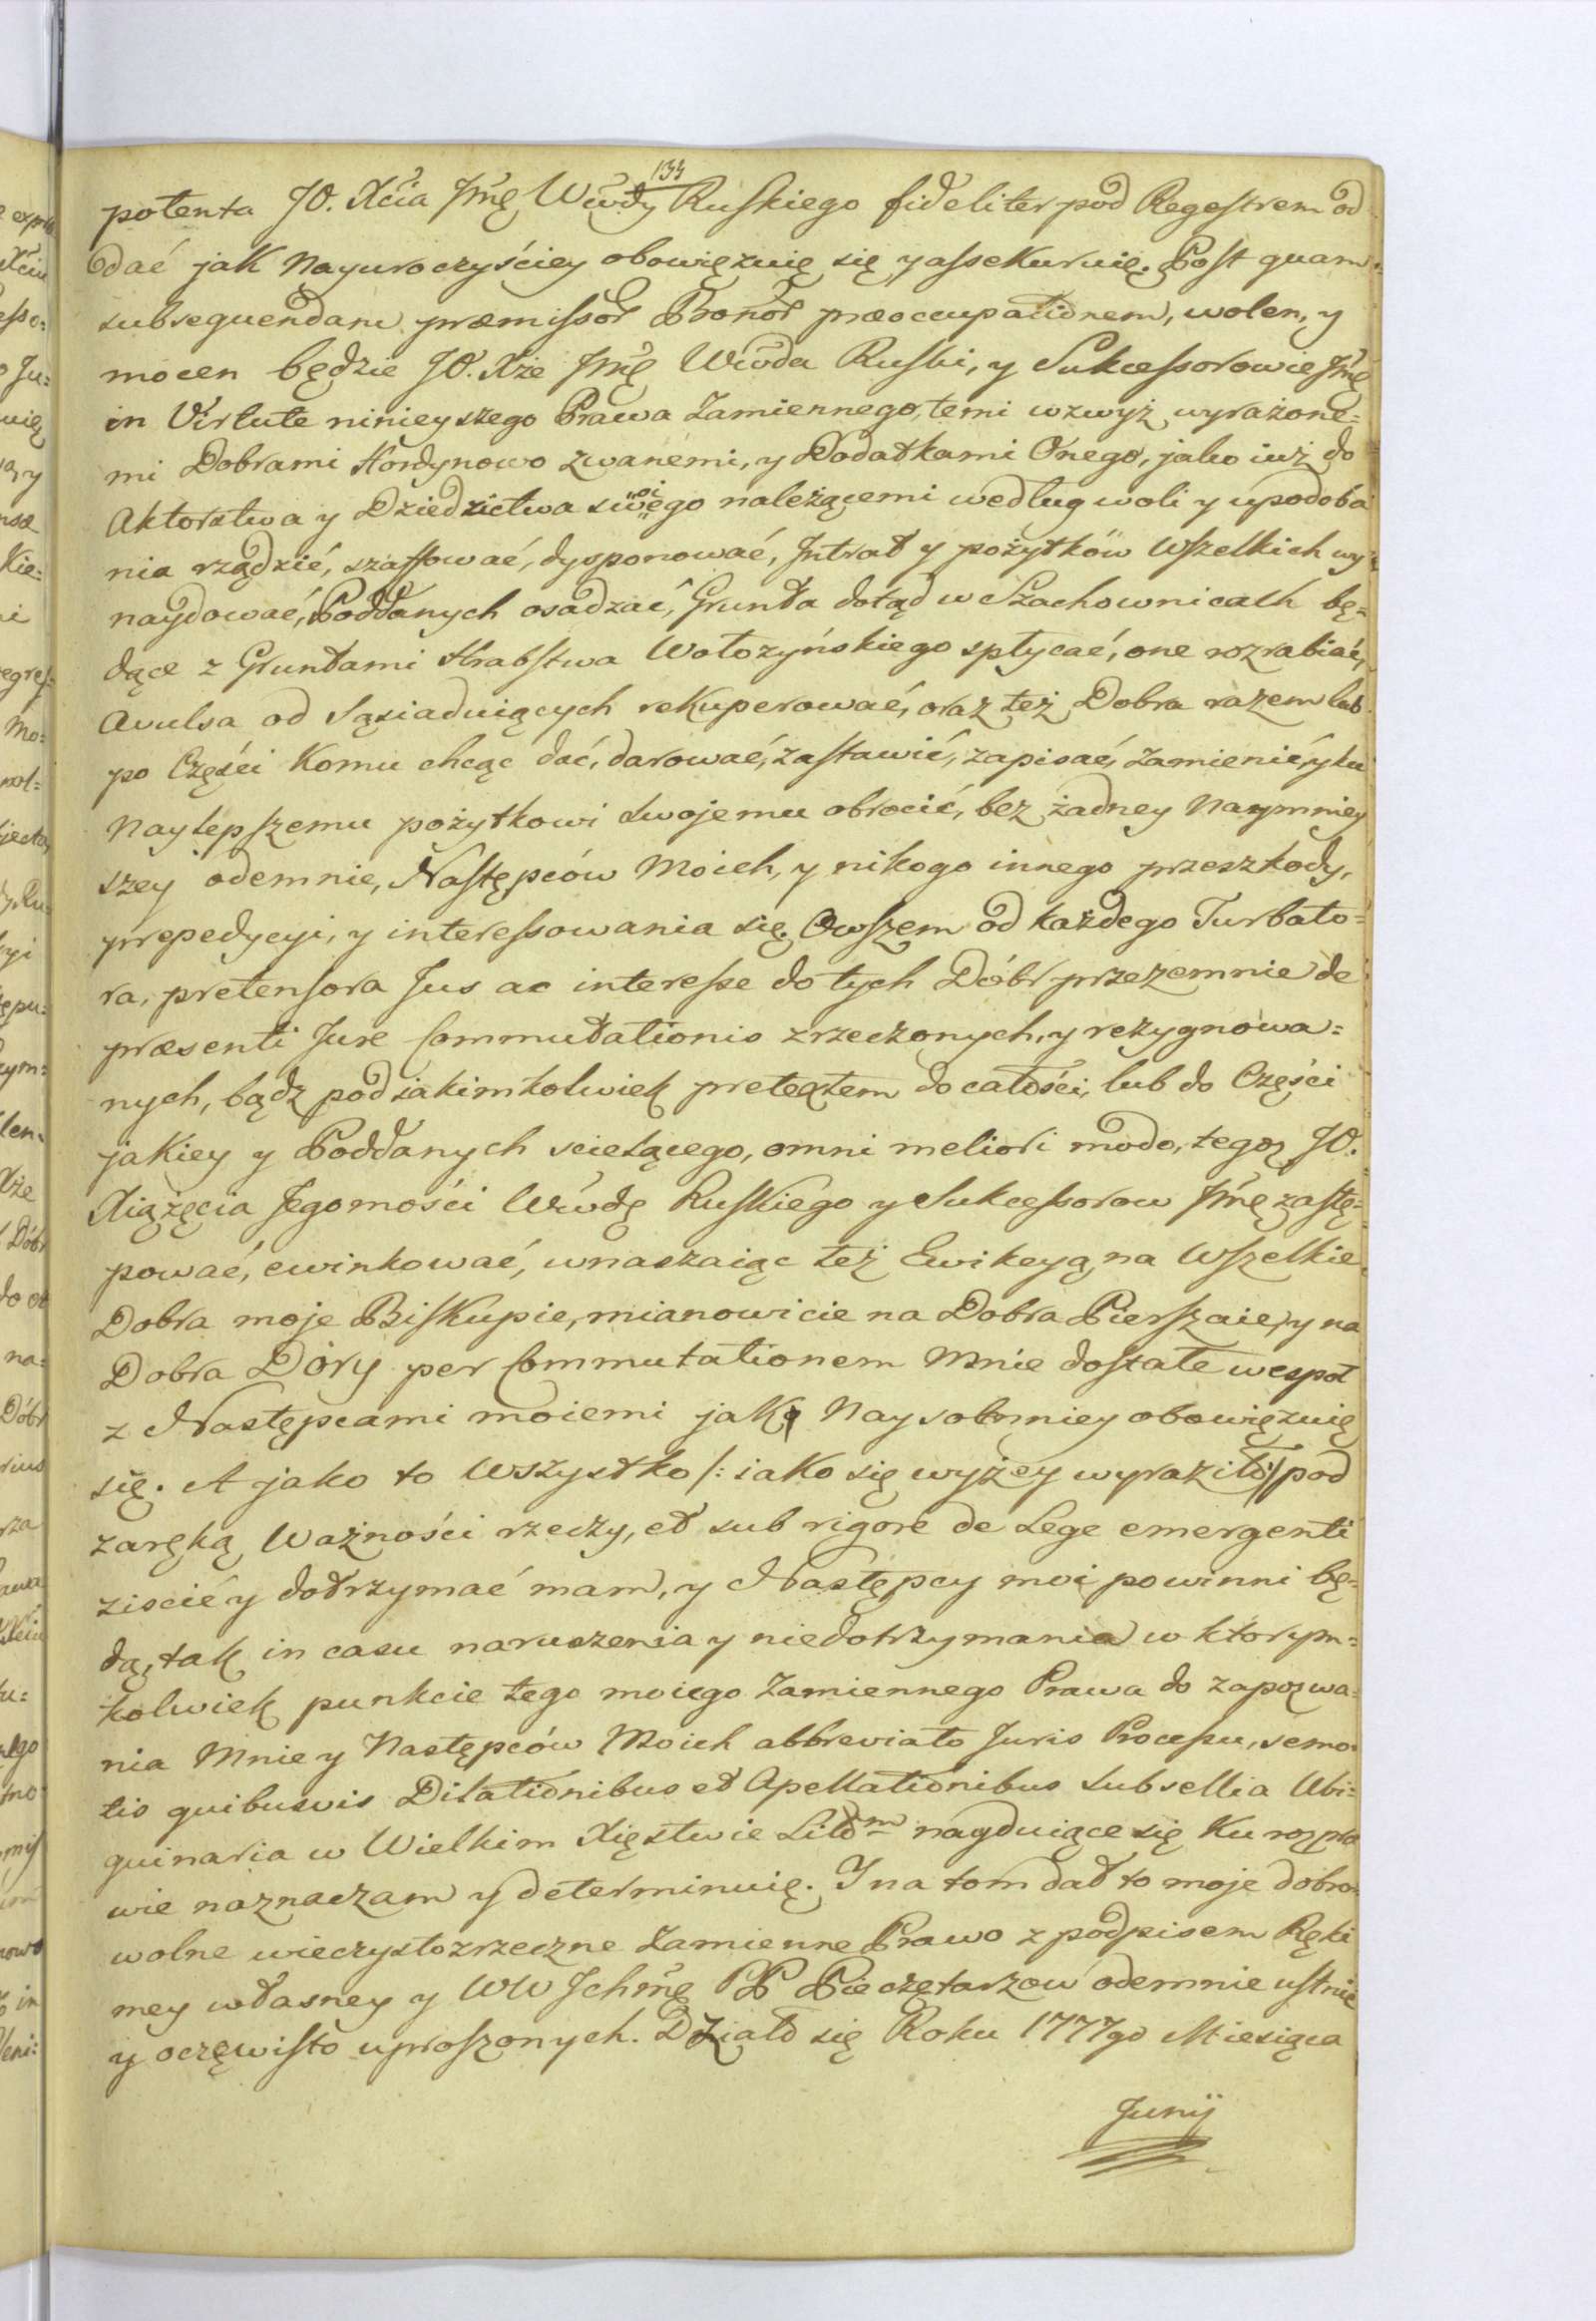 134
potenta JO. Xcia Jmę Wwdy Ruskiego fideliter pod Regestrem od
dać jak Nayuroczyściey obowięzuię się y assekuruię. Post quam
subsequendam præmissor Bonor præoccupationem, wolen, y
mocen będzie JO. Xże Jmę Wwoda Ruski, y Sukcessorowie Jmę
in Virtute ninieyszego Prawa Zamiennego, temi wzwyż wyrażone=
mi Dobrami Hordynowo zwanemi, y Dodatkami Onego, jako iuż do
Aktorstwa y Dziedzictwa swoiego należącemi według woli y upodoba
nia rządzić, szaffować, dysponować, Intrat y pożytków Wszelkich wy
naydować, Poddanych osadzać, Grunta dotąd w Szachownicach bę=
dące z Gruntami Hrabstwa Wołożyńskiego splycać, one rozrabiać,
Avulsa od Sąsiaduiących rekuperować, oraz też Dobra razem lub
po Części Komu chcąc dać, darować, zastawić, zapisać, zamienić, y ku
Naylepszemu pożytkowi swojemu obrocić, bez żadney Naymniey
szey odemnie, Następców Moich, y nikogo innego przeszkody,
prepedycyi, y interessowania się. Owszem od każdego Turbato=
ra, pretensora Jus ac interesse do tych Dóbr przezemnie de
præsenti Jure Commutationis zrzeczonych, y rezygnowa=
nych, bądz pod iakimkolwiek pretextem do całości, lub do Części
jakiey y Poddanych sciełącego, omni meliori modo, tegoz JO.
Xiążęcia Jegomości Wwdę Ruskiego y Sukcessorow Jmę zastę=
pować, ewinkować, wnaszaiąc też Ewikcyą na Wszelkie
Dobra moje Biskupie, mianowicie na Dobra Pierszaie, y na
Dobra Dory per Commutationem Mnie dostałe wespoł
z Następcami moiemi jak Naysolenniey obowięzuię
się. A jako to Wszystko /: iako się wyżey wyraziło :/ pod
zaręką Ważności rzeczy, et sub rigore de Lege emergenti
ziscić y dotrzymać mam, y Następcy moi powinni bę=
dą, tak in casu naruszenia y niedotrzymania w ktorym=
kolwiek punkcie tego moiego Zamiennego Prawa do zapozwa=
nia Mnie y Następców Moich abbreviato Juris Processu, semo=
tis quibusvis Dilationibus et Apellationibus Subsellia Ubi=
quinaria w Wielkim Xięstwie Litm nayduiące się Ku rozpra
wie naznaczam y determinuię. I na tom dał to moje dobro=
wolne wieczystozrzeczne Zamienne Prawo z podpisem Ręki
mey własney y WW Ichmę PP Pieczętarzow odemnie ustnie
y oczewisto uproszonych. Działo się Roku 1777go Miesiąca
Junij